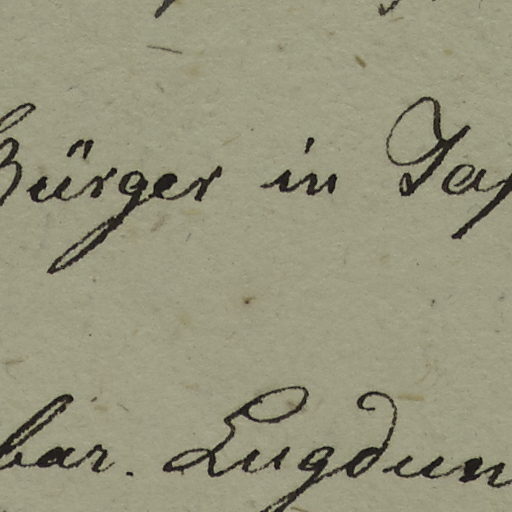 Bürger in Jap
bar. Lugdun